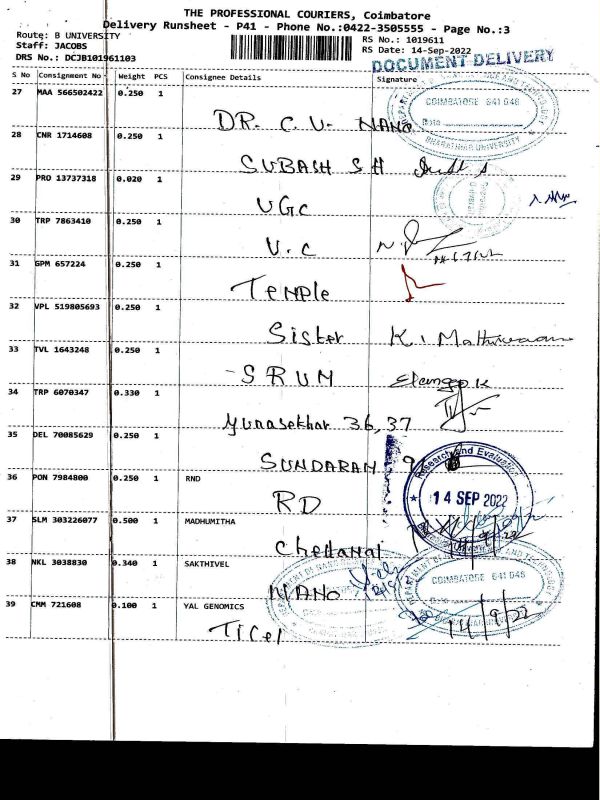 THE PROFESSIONAL COURIERS, Coimbatore
Delivery Runsheet - P41 - Phone No.:0422-3505555 - Page No.:3
Route: B UNIVERSITY
Staff: JACOBS
DRS No.: DCJB101961103
RS No.: 1019611
RS Date: 14-Sep-2022
DOCUMENT DELIVERY
S No Consignment No Weight PCS Consignee Details Signature
27 MAA 566502422 0.250 1
DR. C. U. NANO
COIMBATORE 641 046
Date
BHARATHIAR UNIVERSITY
28 CNR 1714608 0.250 1
SUBASH S H
29 PRO 13737318 0.020 1
UGC
30 TRP 7863410 0.250 1
V.C
31 GPM 657224 0.250 1
Temple
32 VPL 519805693 0.250 1
Sister K.
33 TVL 1643248 0.250 1
SRUM Elango K
34 TRP 6070347 0.330 1
Gunasekhar 36,37
35 DEL 70085629 0.250 1
SUNDARAM 9
Research and Evaluation
14 SEP 2022
36 PON 7984800 0.250 1 RND
RD
37 SLM 303226077 0.500 1 MADHUMITHA
Chettanai
38 NKL 3038830 0.340 1 SAKTHIVEL
NANO
COIMBATORE 641 046
39 CMM 721608 0.100 1 YAL GENOMICS
Ticel 14/9/22